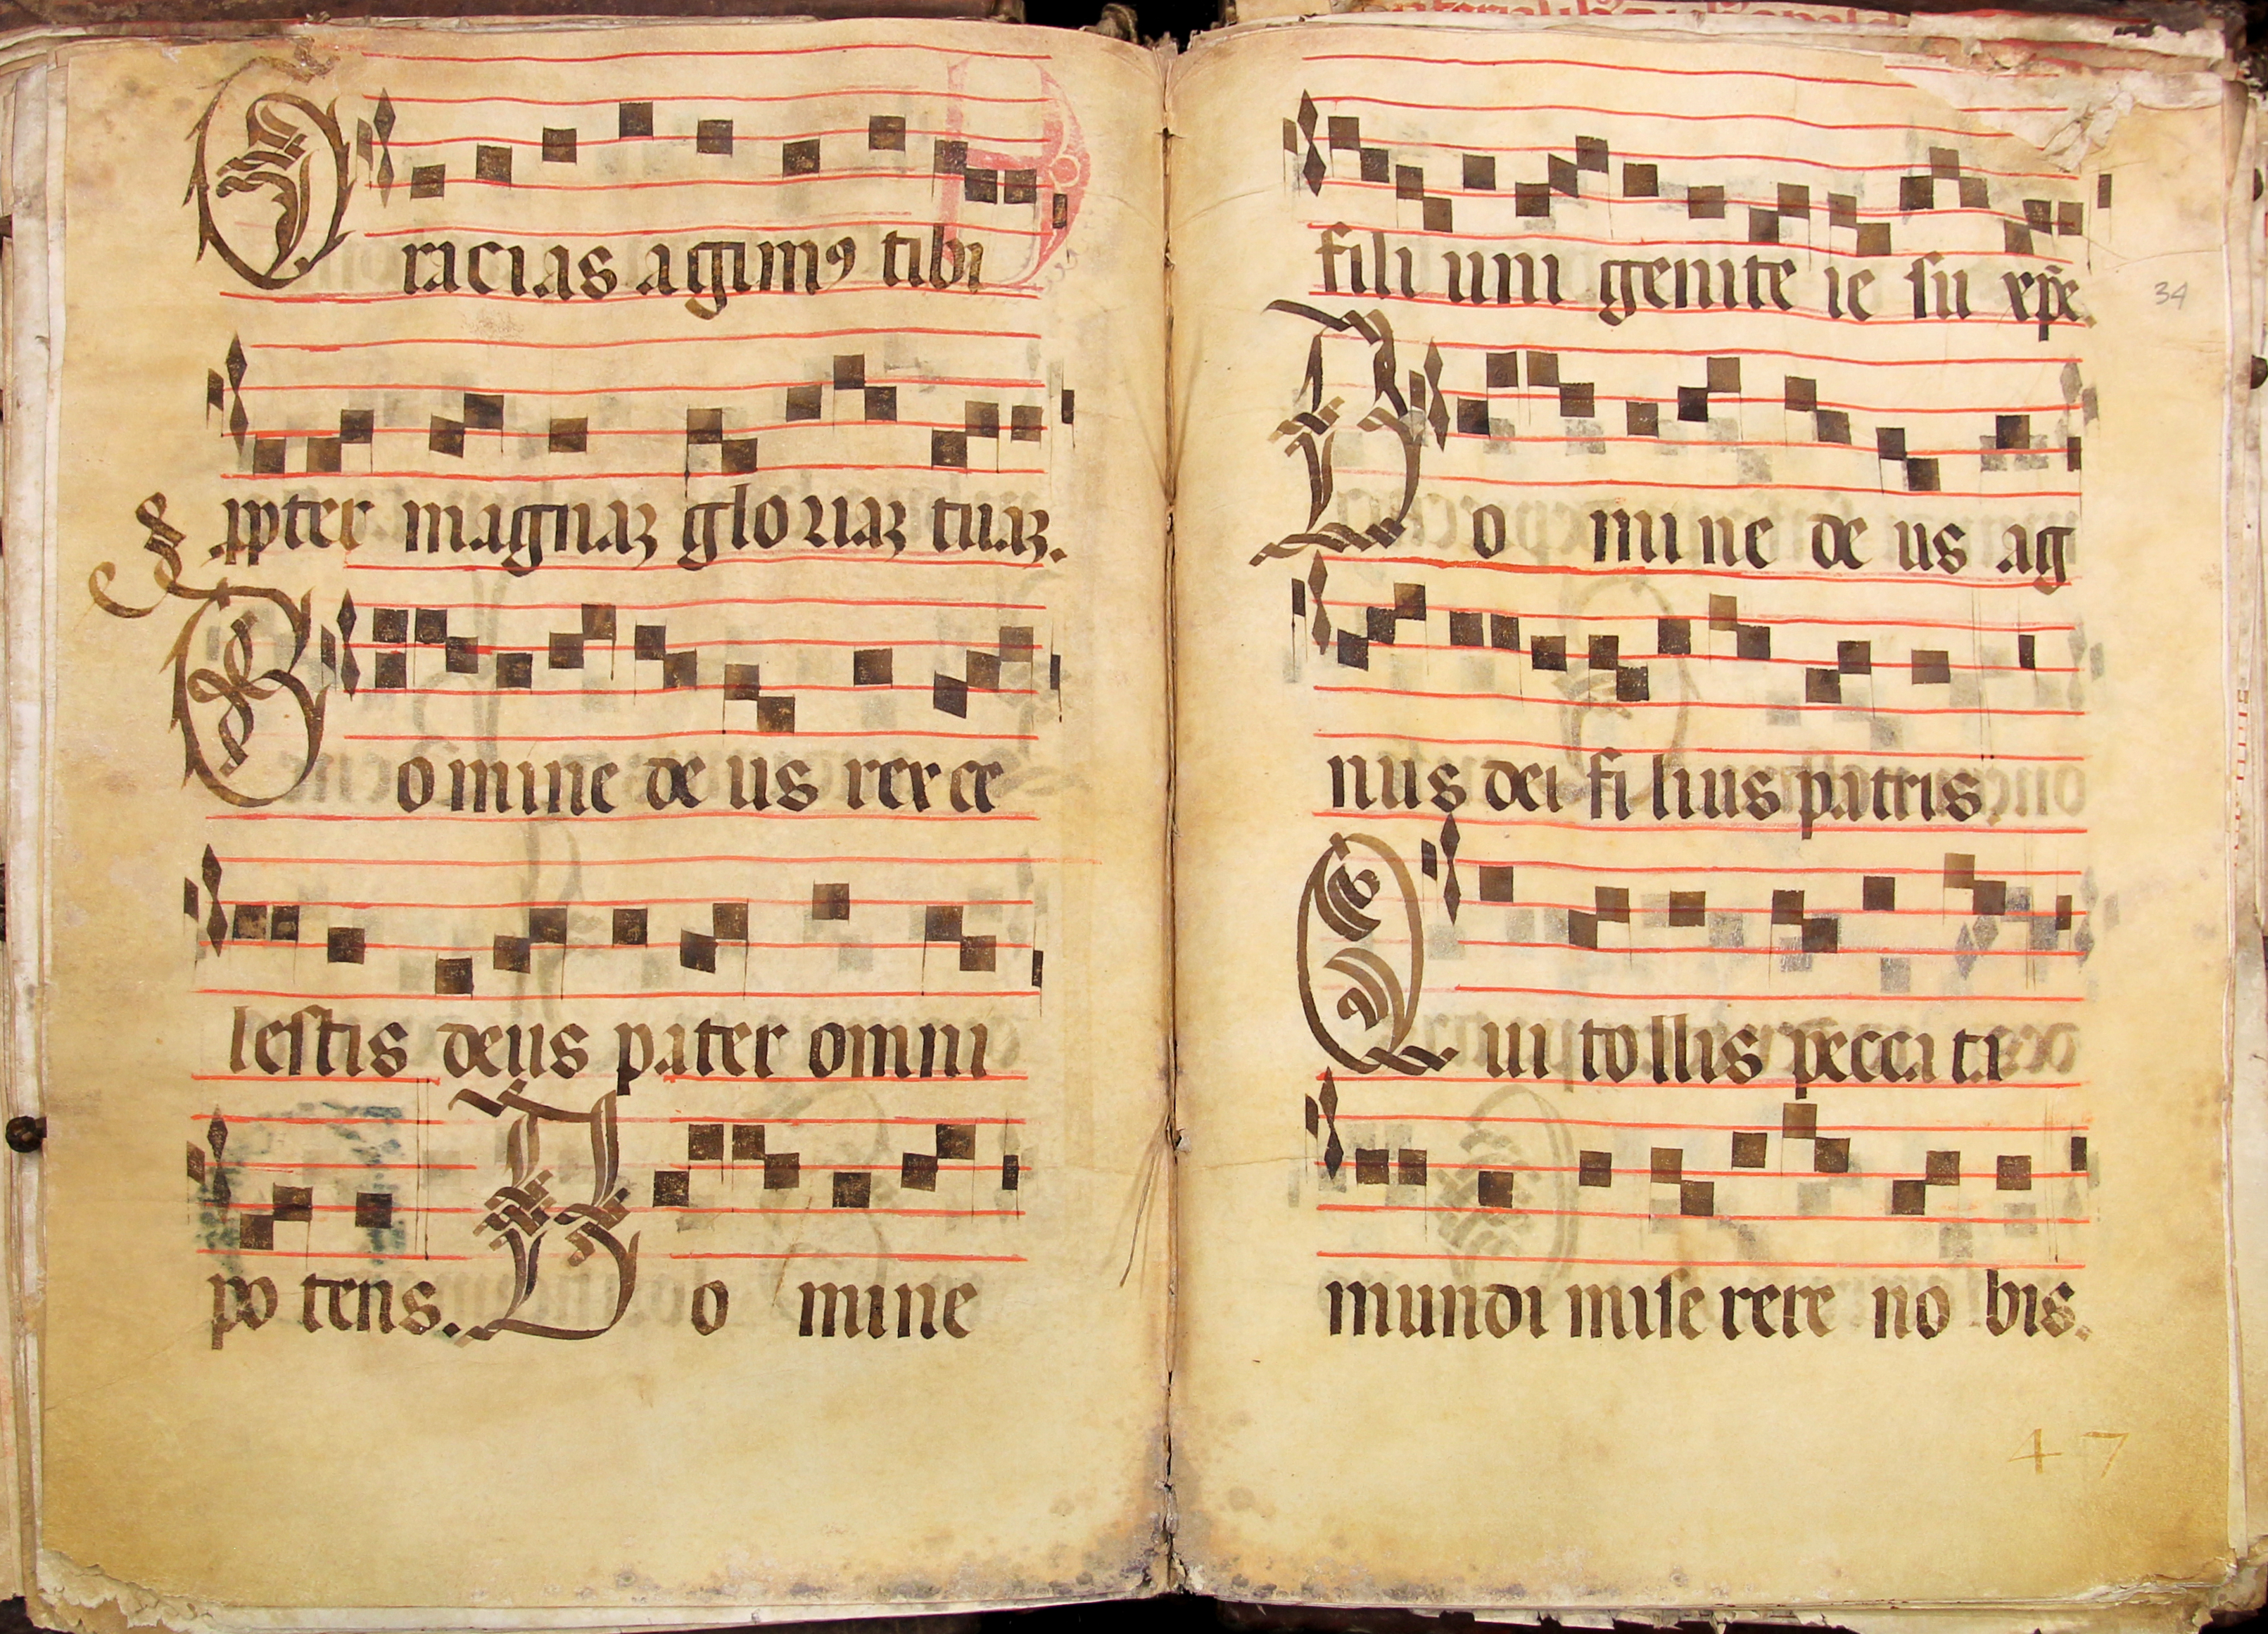 Gracias agimꝰ tibi
ꝓpter magnaʒ gloriaʒ tuaʒ.
Domine deus rex ce
lestis deus pater omni
po tens. Do mine
fili uni genite ie su xp̄e.
Do mine de us ag
nus dei fi lius patris
Qui tollis pecca ta
mundi mise rere no bis.
34
47